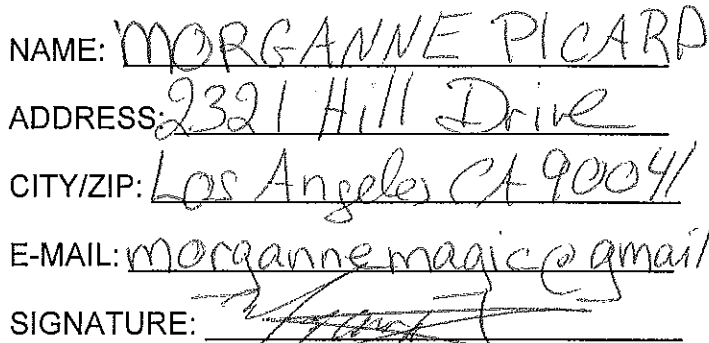 NAME: MORGANNE PICARD
ADDRESS: 2321 Hill Drive
CITY/ZIP: Los Angeles CA 90041
E-MAIL: morgannemagic@gmail
SIGNATURE: